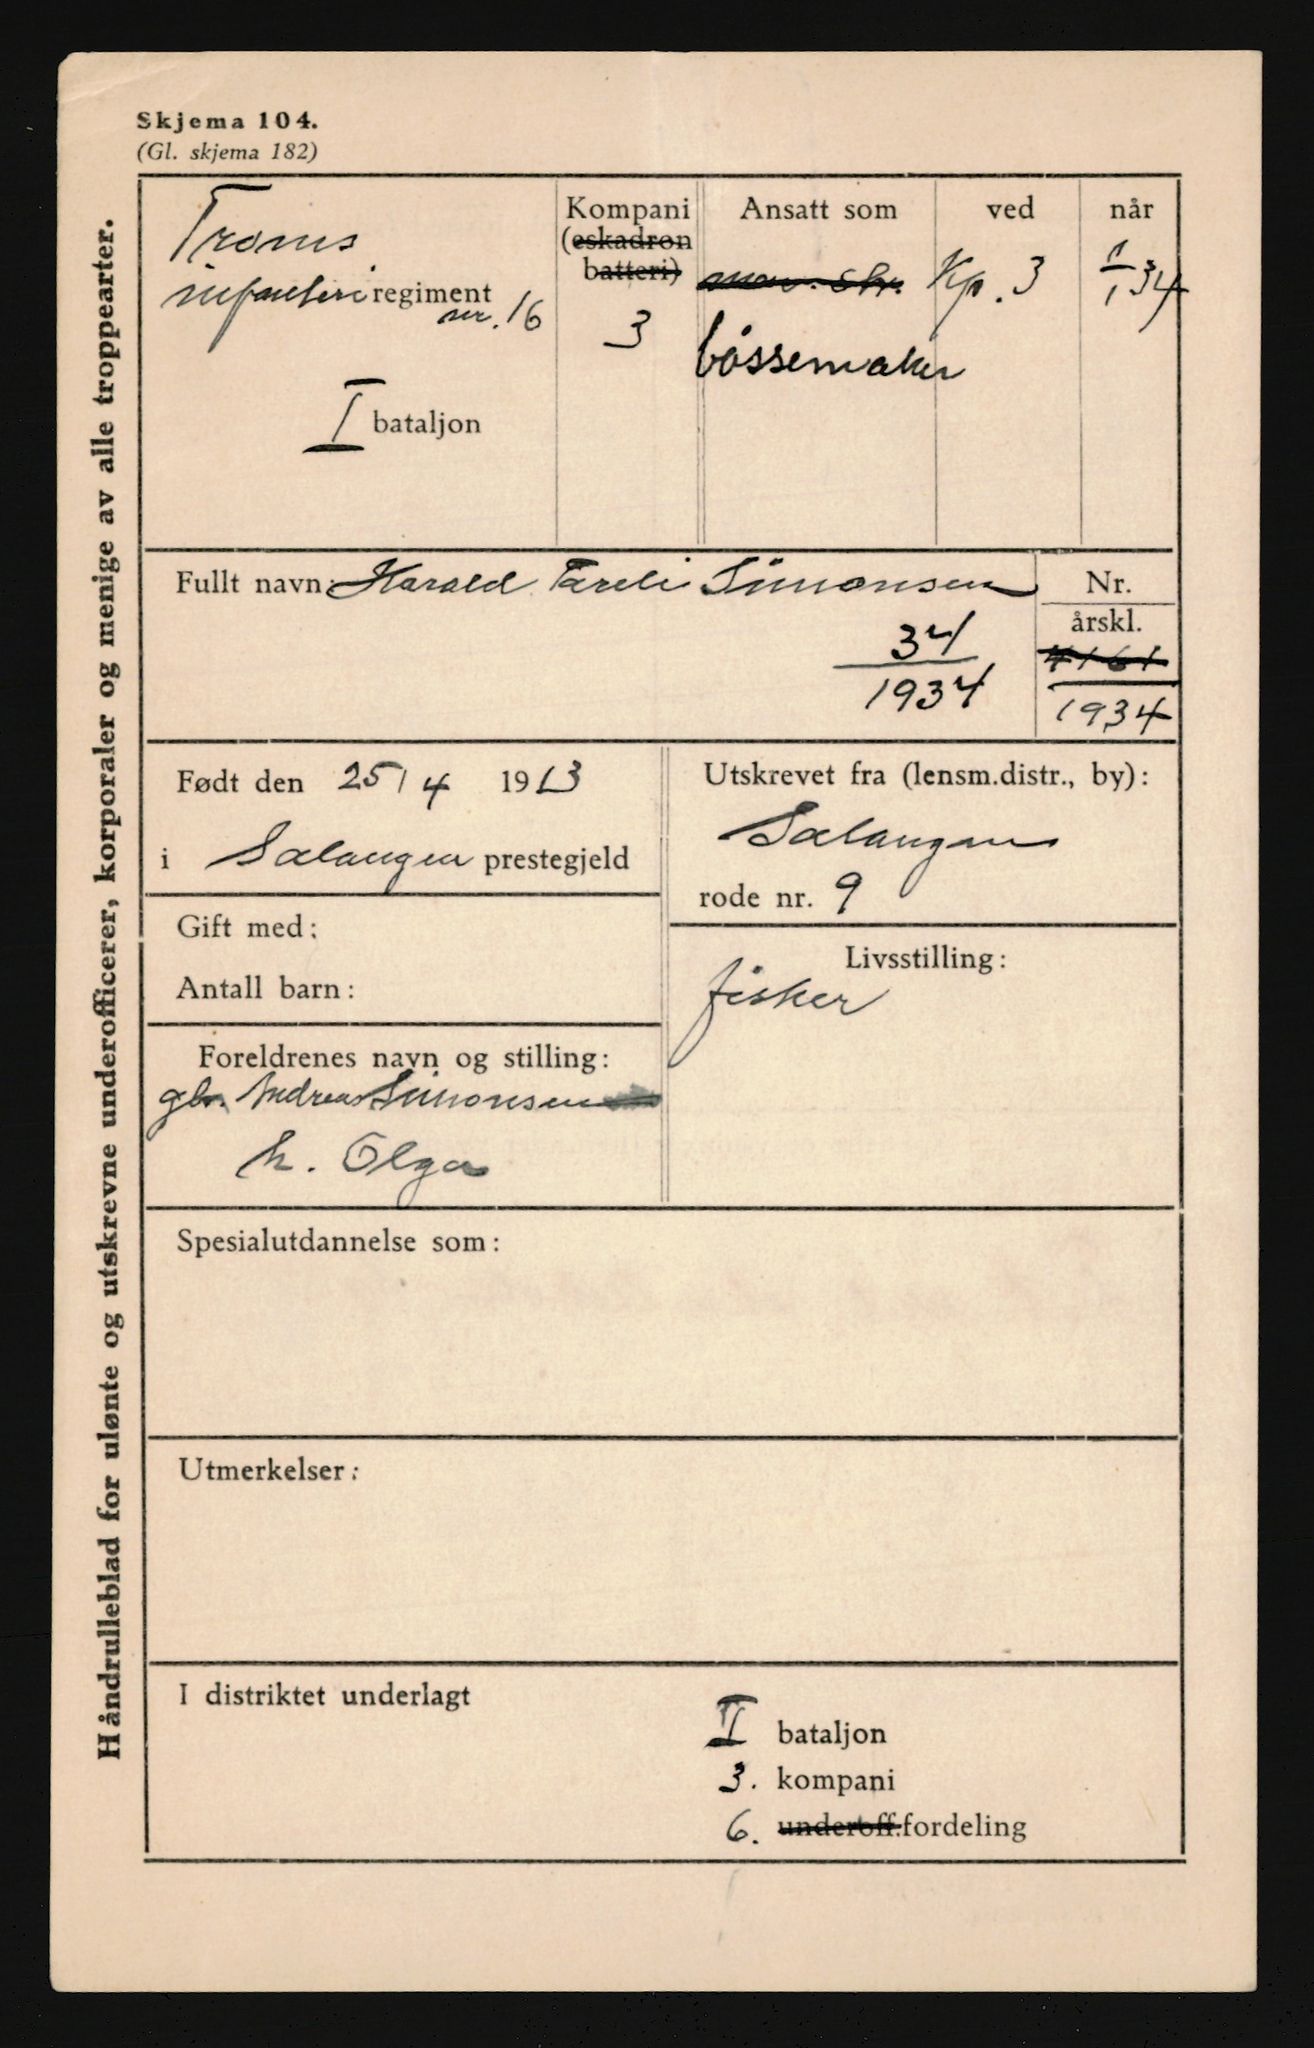 Skjema 104.
(Gl. skjema 182)
Håndrulleblad for ulønte og utskrevne underofficerer, korporaler og menige av alle troppearter.
Troms
infanteri regiment
nr. 16
I bataljon
Kompani
(eskadron
batteri)
3
Ansatt som
bøssemaker
ved
Kp. 3
når
1/1 34
Fullt navn: Harald Tareli Simonsen
34
1934
Nr.
årskl.
4161
1934
Født den 25/4 1913
i Salangen prestegjeld
Utskrevet fra (lensm.distr., by):
Salangen
rode nr. 9
Gift med:
Antall barn:
Livsstilling:
fisker
Foreldrenes navn og stilling:
gbr. Andreas Simonsen
h. Olga
Spesialutdannelse som:
Utmerkelser:
I distriktet underlagt
I bataljon
3. kompani
6. underoff.fordeling